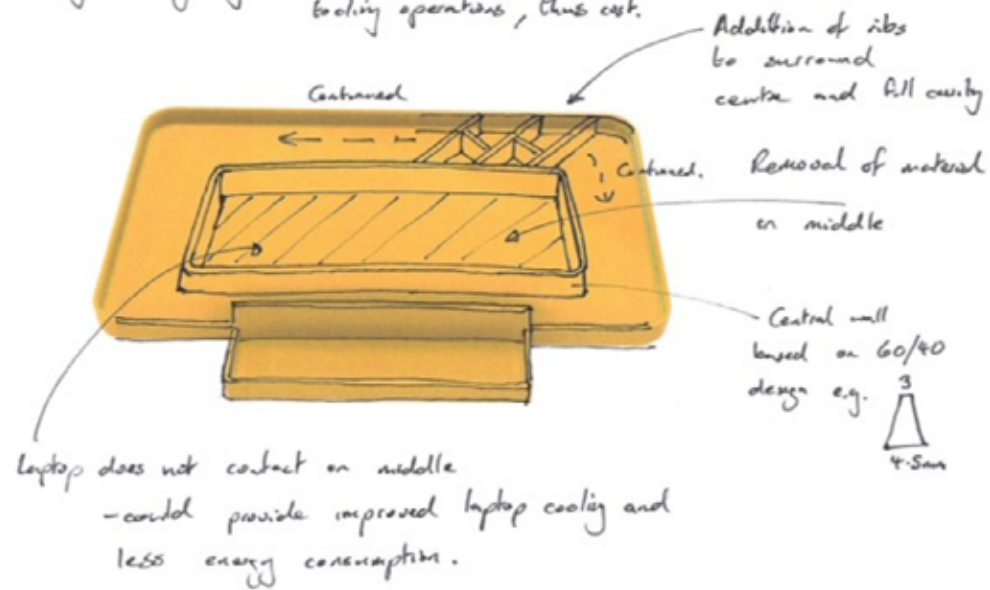 tooling operations, thus cost.
Addition of ribs
to surround
centre and fill cavity
Continued
Continued.
Removal of material
in middle
Central wall
based on 60/40
design e.g.
3
4.5mm
Laptop does not contact in middle
- could provide improved laptop cooling and
less energy consumption.